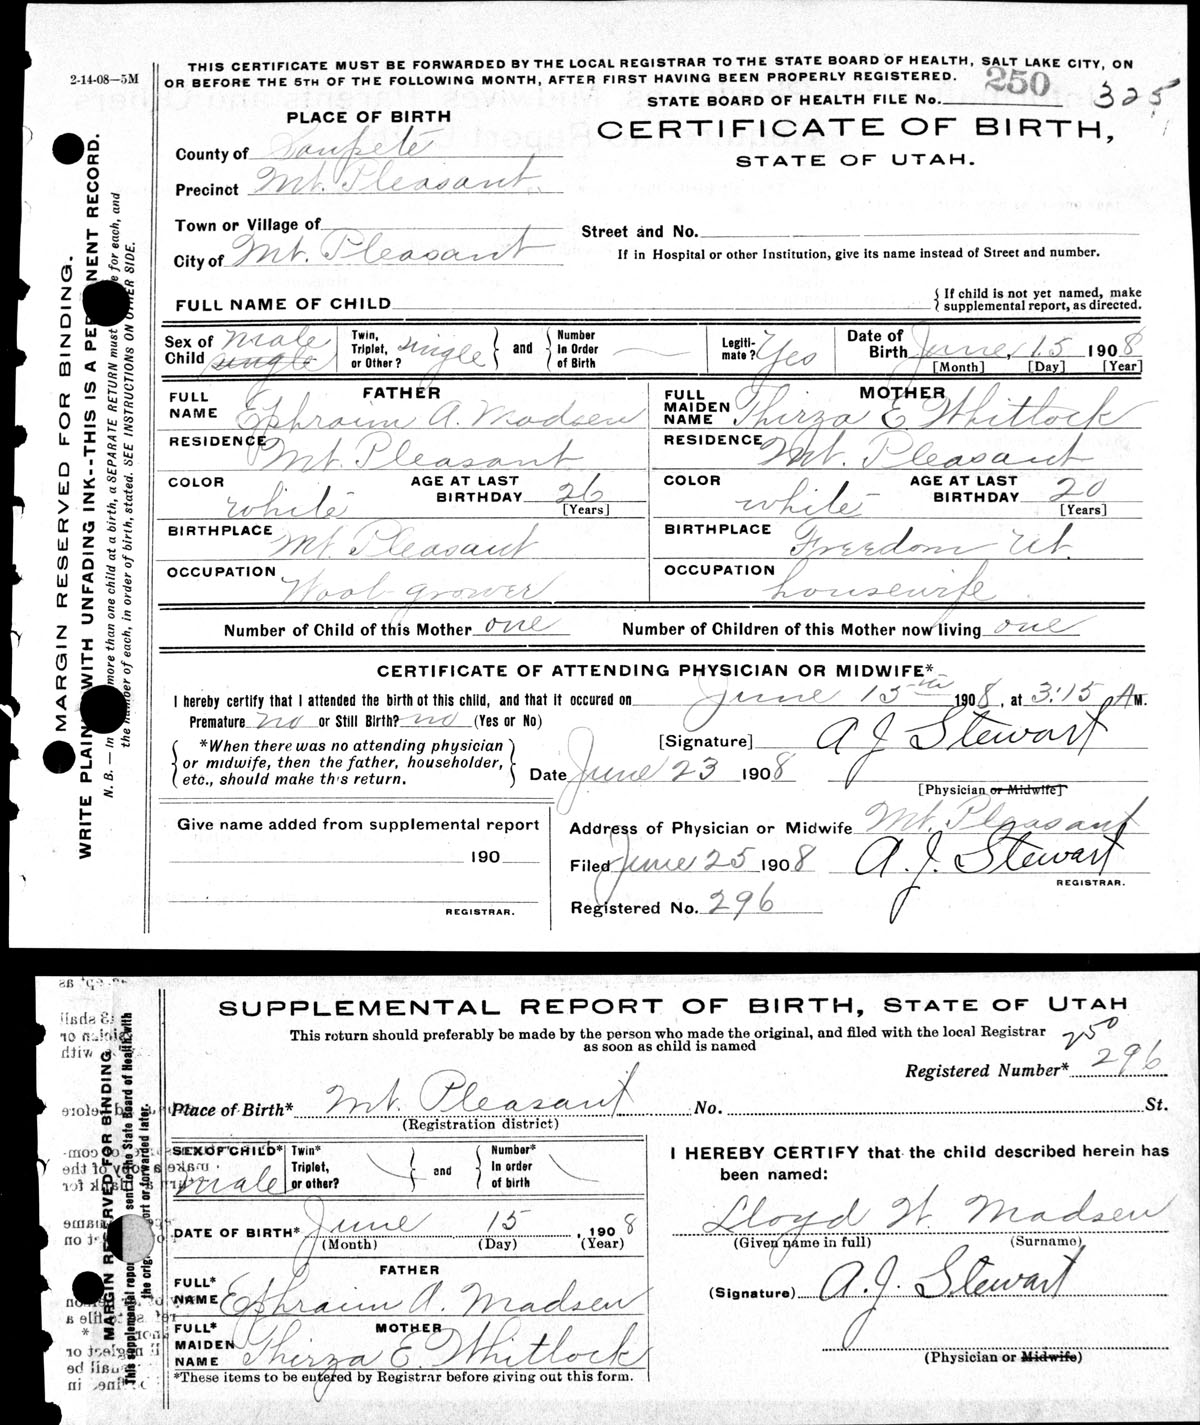 2-14-08—5M
THIS CERTIFICATE MUST BE FORWARDED BY THE LOCAL REGISTRAR TO THE STATE BOARD OF HEALTH, SALT LAKE CITY, ON
OR BEFORE THE 5TH OF THE FOLLOWING MONTH, AFTER FIRST HAVING BEEN PROPERLY REGISTERED. 250
STATE BOARD OF HEALTH FILE No. 325
PLACE OF BIRTH
CERTIFICATE OF BIRTH,
STATE OF UTAH.
County of Sanpete
Precinct Mt. Pleasant
Town or Village of
Street and No.
City of Mt. Pleasant
If in Hospital or other Institution, give its name instead of Street and number.
FULL NAME OF CHILD
{ If child is not yet named, make
supplemental report, as directed.
Sex of Child male single
Twin, Triplet, or Other? single } and { Number In Order of Birth —
Legiti-mate? Yes
Date of Birth June, 15 1908
[Month] [Day] [Year]
FATHER
FULL NAME Ephraim A. Madsen
MOTHER
FULL MAIDEN NAME Thirza E. Whitlock
RESIDENCE Mt. Pleasant
RESIDENCE Mt. Pleasant
COLOR white AGE AT LAST BIRTHDAY 26 [Years]
COLOR white AGE AT LAST BIRTHDAY 20 [Years]
BIRTHPLACE Mt Pleasant
BIRTHPLACE Freedom Ut.
OCCUPATION Wool grower
OCCUPATION housewife
Number of Child of this Mother one Number of Children of this Mother now living one
CERTIFICATE OF ATTENDING PHYSICIAN OR MIDWIFE*
I hereby certify that I attended the birth of this child, and that it occured on June 15th 1908, at 3:15 A M.
Premature no or Still Birth? no (Yes or No)
{ *When there was no attending physician
or midwife, then the father, householder,
etc., should make this return. }
[Signature] A J Stewart
Date June 23 1908
[Physician or Midwife]
Give name added from supplemental report
190
REGISTRAR.
Address of Physician or Midwife Mt. Pleasant
Filed June 25 1908 A. J. Stewart
REGISTRAR.
Registered No. 296
MARGIN RESERVED FOR BINDING.
WRITE PLAIN WITH UNFADING INK--THIS IS A PE NENT RECORD.
N. B. — In more than one child at a birth, a SEPARATE RETURN must e for each, and
the number of each, in order of birth, stated. SEE INSTRUCTIONS ON OTHER SIDE.
SUPPLEMENTAL REPORT OF BIRTH, STATE OF UTAH
This return should preferably be made by the person who made the original, and filed with the local Registrar
as soon as child is named
250
Registered Number* 296
Place of Birth* Mt. Pleasant No. St.
(Registration district)
SEX OF CHILD* male
Twin* Triplet, or other? } and { Number* In order of birth
DATE OF BIRTH* June 15, 1908
(Month) (Day) (Year)
FATHER
FULL* NAME Ephraim A. Madsen
MOTHER
FULL* MAIDEN NAME Thirza E. Whitlock
*These items to be entered by Registrar before giving out this form.
I HEREBY CERTIFY that the child described herein has
been named:
Lloyd W. Madsen
(Given name in full) (Surname)
(Signature) A. J. Stewart
(Physician or Midwife)
MARGIN RESERVED FOR BINDING